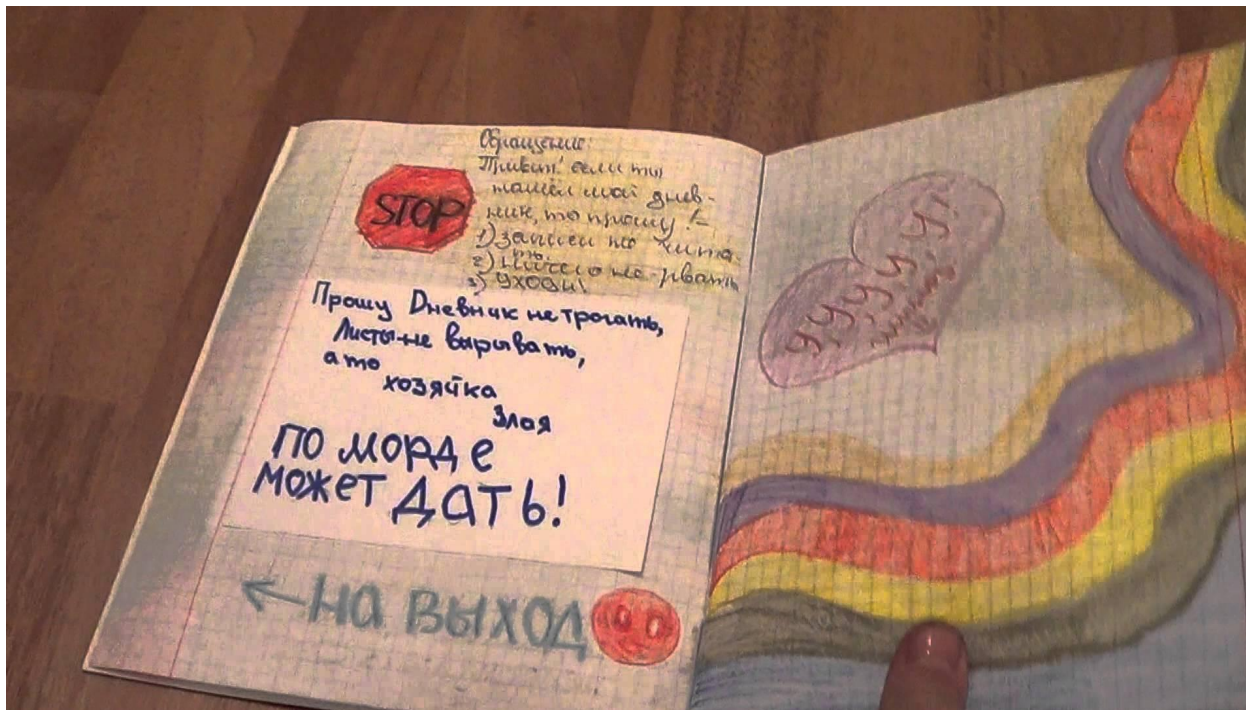 STOP
Обращение:
Привет! если ты
нашёл мой днев-
ник, то прошу!
1) записи не чита-
ть.
2) Ничего не рвать
3) Уходи!
Прошу Дневник не трогать,
Листы-не вырывать,
а то
хозяйка
Злая
ПО МОРДЕ
может ДАТЬ!
← НА ВЫХОД
У, У, У, У, У!